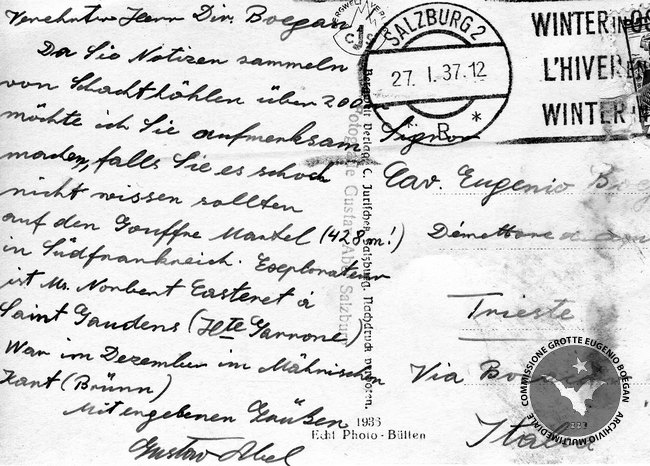 Verehrter Herr Dir. Boegan
Da Sie Notizen sammeln
von Schachthöhlen über 200 m
möchte ich Sie aufmerksam
machen, falls Sie es schoh
nicht wissen sollten
auf den Gouffre Martel (428 m!)
in Südfrankreich. Explorateur
ist Mr. Norbert Casteret à
Saint Gaudens (Hte Garonne)
War im Dezember im Mährischen
Karst (Brünn)
Mit ergebenen Grüßen
Gustav Abel
SALZBURG 2
27. I. 37. 12
R
*
WINTER IN
L'HIVER EN
WINTER IN
CJS
Verlag C. Jurischek, Salzburg. Nachdruck verboten.
Gustav Abel Salzburg
1936
Echt Photo-Bütten
Signor
Cav. Eugenio
Direttore
Trieste
Via
Italia
COMMISSIONE GROTTE EUGENIO BOEGAN
ARCHIVIO MULTIMEDIALE